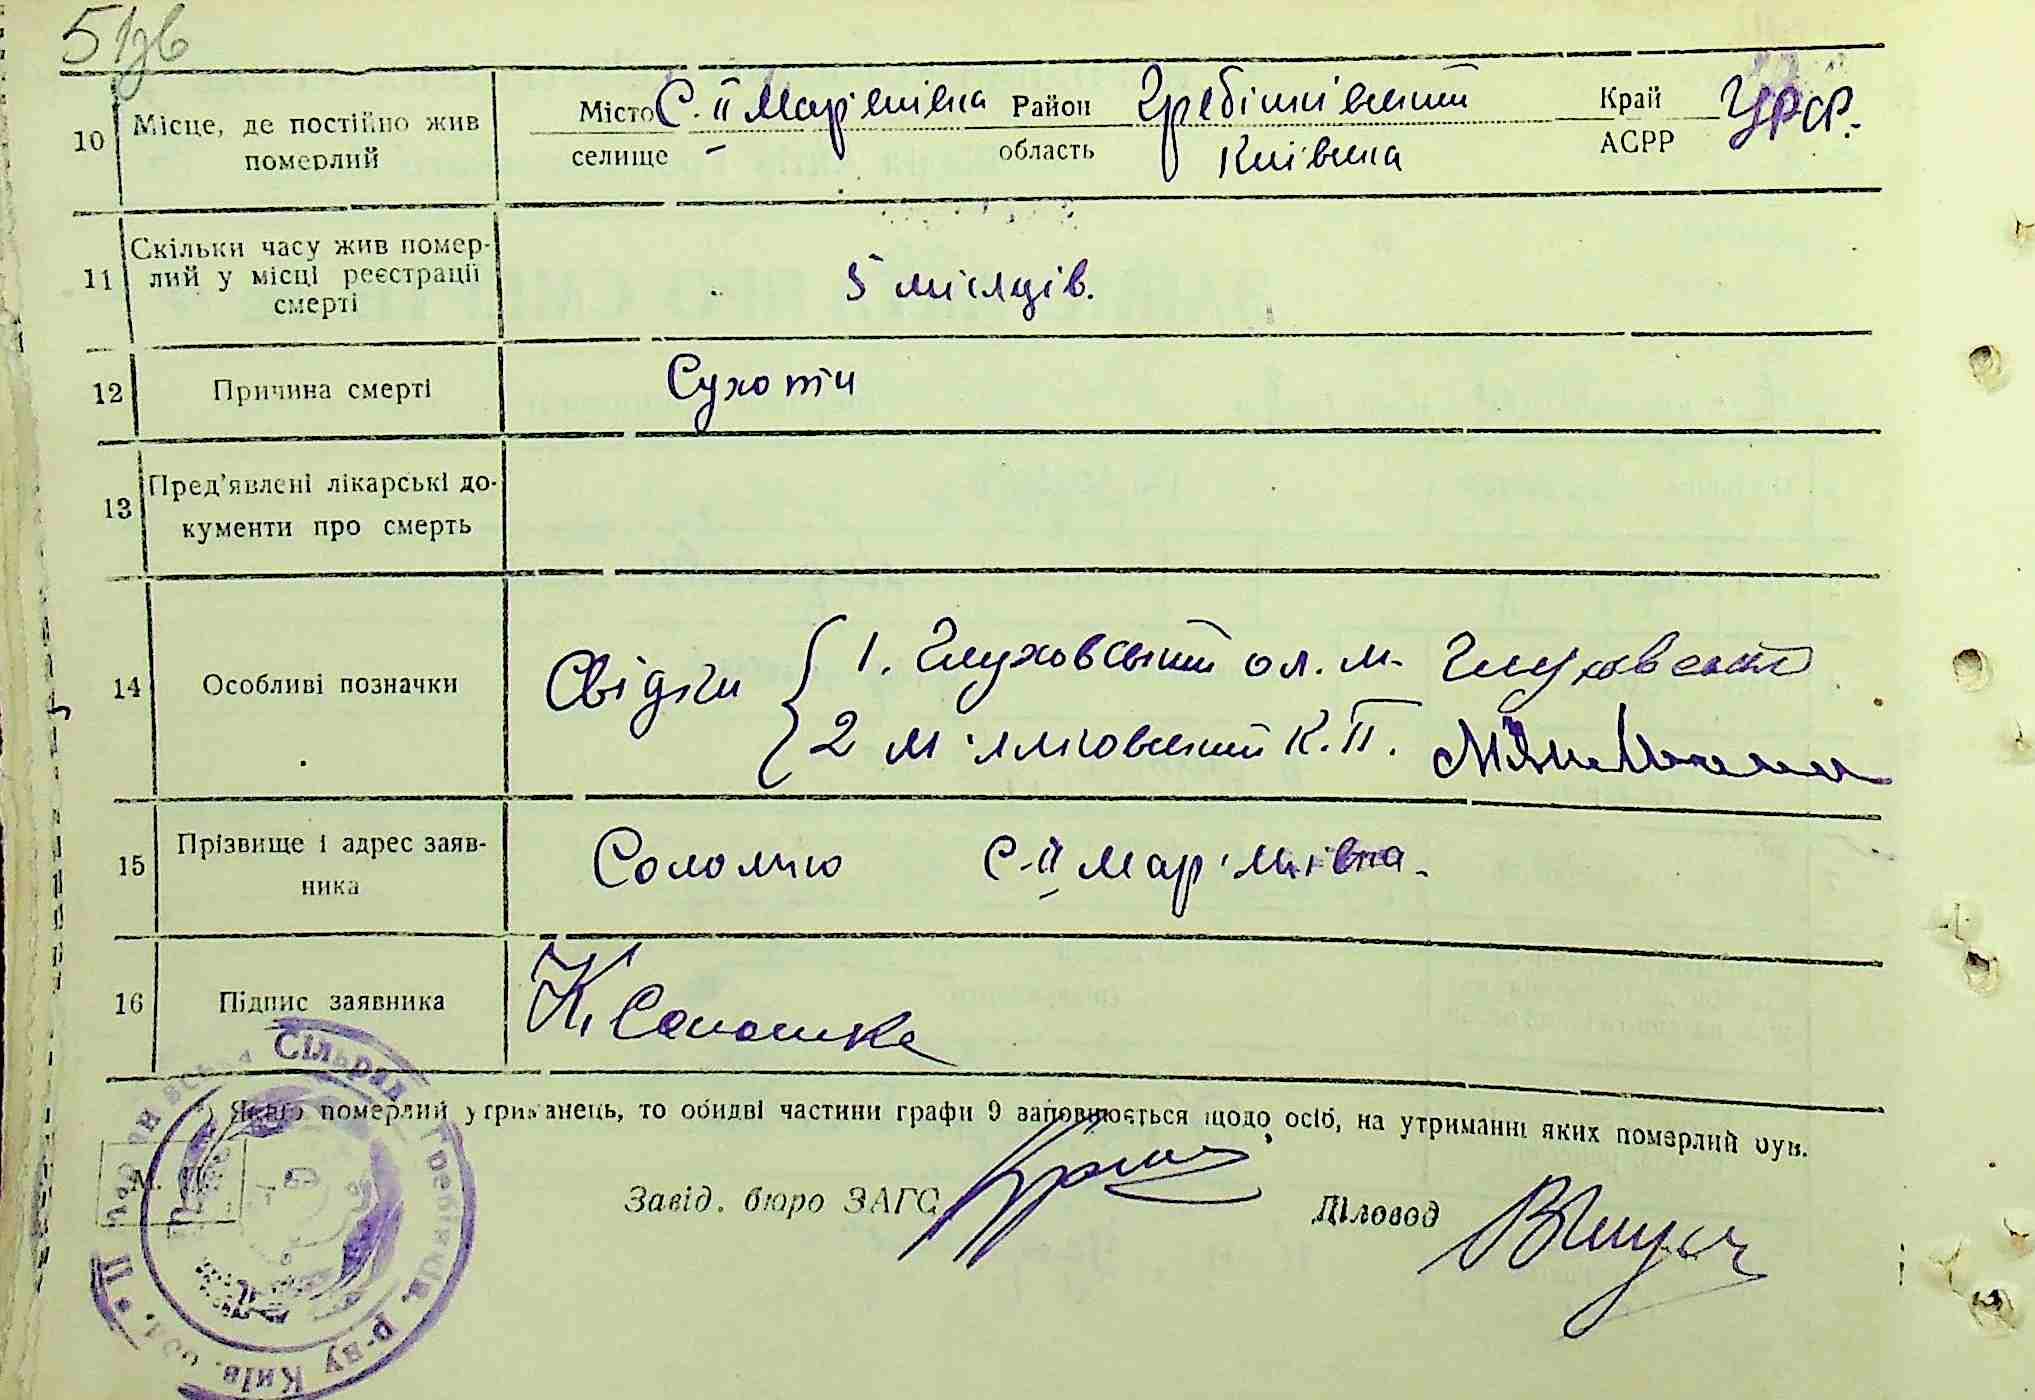 51зв
10 Місце, де постійно жив померлий
Місто С. ІІ Мар'янівка Район Гребінківський Край УРСР.
селище область Київська АСРР
11 Скільки часу жив помер-
лий у місці реєстрації
смерті
5 місяців.
12 Причина смерті Сухоти
13 Пред'явлені лікарські до-
кументи про смерть
14 Особливі позначки
Свідки 1. Глуховський ол. м. Глуховський
2 К. П.
15 Прізвище і адрес заяв-
ника
С. ІІ Мар'янівка.
16 Підпис заявника К.
*) Якщо померлий утриманець, то обидві частини графи 9 заповнюється щодо осіб, на утриманні яких померлий був.
М. П.
Завід. бюро ЗАГС Діловод
Сільрад Гребінків. р-ну Київ. обл. • ІІ